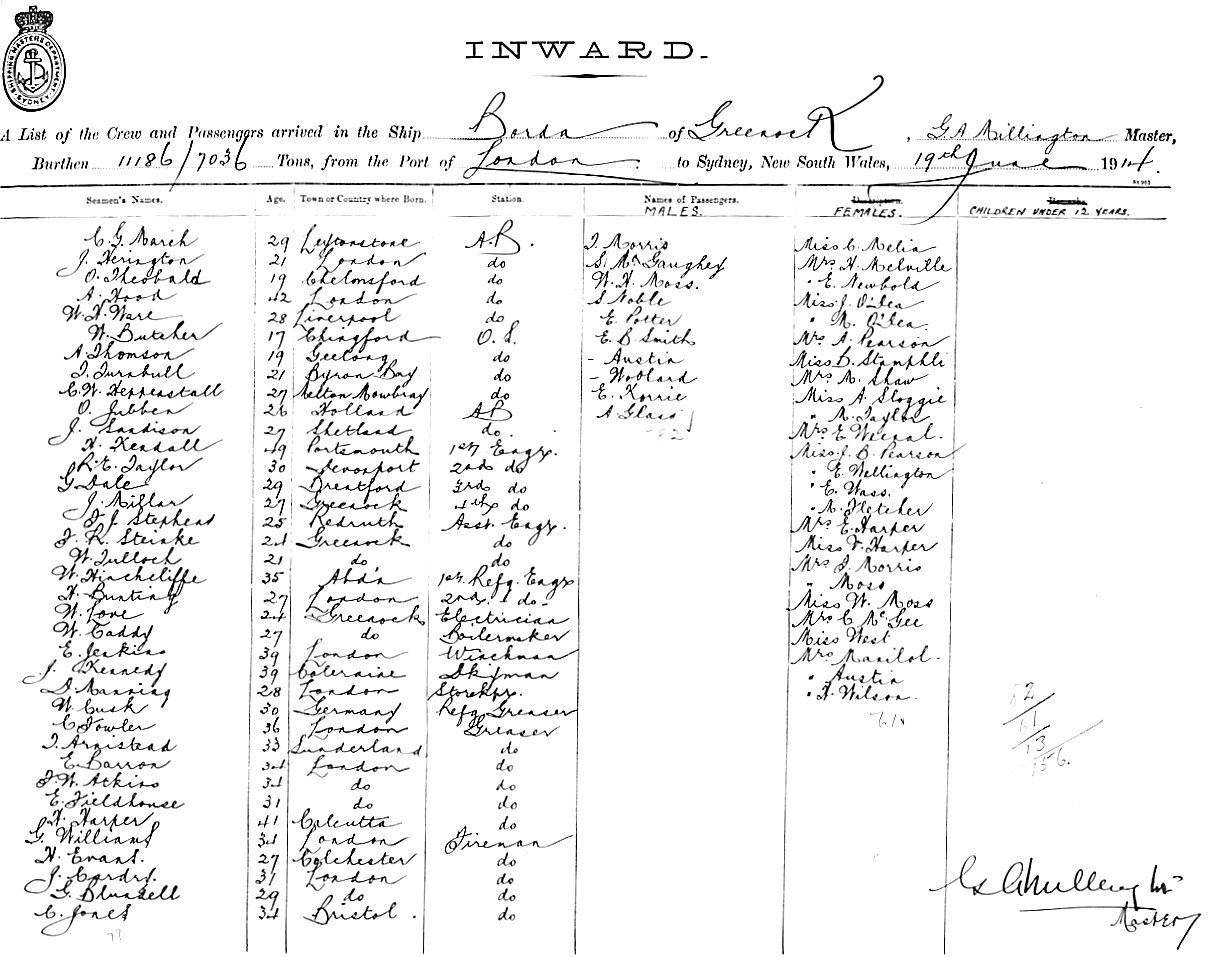 SHIPPING MASTERS DEPARTMENT SYDNEY
INWARD.
A List of the Crew and Passengers arrived in the Ship Borda of Greenock, G A Millington Master,
Burthen 11186/7036 Tons, from the Port of London to Sydney, New South Wales, 19th June 1914.
Seamen's Names. Age. Town or Country where Born. Station. Names of Passengers. MALES. FEMALES. CHILDREN UNDER 12 YEARS.
C. G. March 29 Leytonstone A.B. J. Morris Miss C. Melia
J. Herington 21 London do S. McGaughey Mrs H. Melville
O. Theobald 19 Chelmsford do W. H. Moss. " E. Newbold
A. Hood 42 London do S Noble Miss J. O'Dea
W. H. Ware 28 Liverpool do E. Potter " M. O'Dea.
W. Butcher 17 Chingford O. S. E. B Smith Mrs A. Pearson
A Thomson 19 Geelong do - Austin Miss B. Stamphli
J. Turnbull 21 Byron Bay do - Woolard Mrs M. Shaw
C. W. Heppenstall 27 Melton Mowbray do E. Korrie Miss A Sloggie
O. Jibben 26 Holland AB A Glass " M. Taylor
J. Sandison 27 Shetland do. Mrs E
H. Kendall 49 Portsmouth 1st Engr. Miss J. B. Pearson
R. E. Taylor 30 Devonport 2nd do " E. Wellington
G Dale 29 Brentford 3rd do " E. Wass.
J. Millar 27 Greenock 4th do " M. Fletcher
J. J Stephens 25 Redruth Asst. Engr. Mrs E. Harper
J. R. Steinke 24 Greenock do Miss V. Harper
W. Tulloch 21 do do Mrs J. Morris
W. Hinchcliffe 35 Abd'n 1st Refg. Engr " Moss
H. Bunting 27 London 2nd " do - Miss W. Moss
W. Love 24 Greenock Electrician Mrs C McGee
W. Caddy 27 do Boilermaker Miss West
E. Jenkins 39 London Winchman Mrs Manilol.
J. Kennedy 39 Coleraine Dkyman " Austin
D. Manning 28 London Storekpr. " H. Wilson.
W. Cusk 30 Germany Refg Greaser
C Fowler 36 London Greaser
J. Armistead 33 Sunderland do
E. Barron 34 London do
J. W. Atkins 34 do do
E. Fieldhouse 31 do do
H. Harper 41 Calcutta do
G. Williams 34 London Fireman
H. Evans. 27 Colchester do
J. Cordry. 31 London do
G. Blundell 29 do do
C. Jones 34 Bristol. do
82
61
13
156.
Master